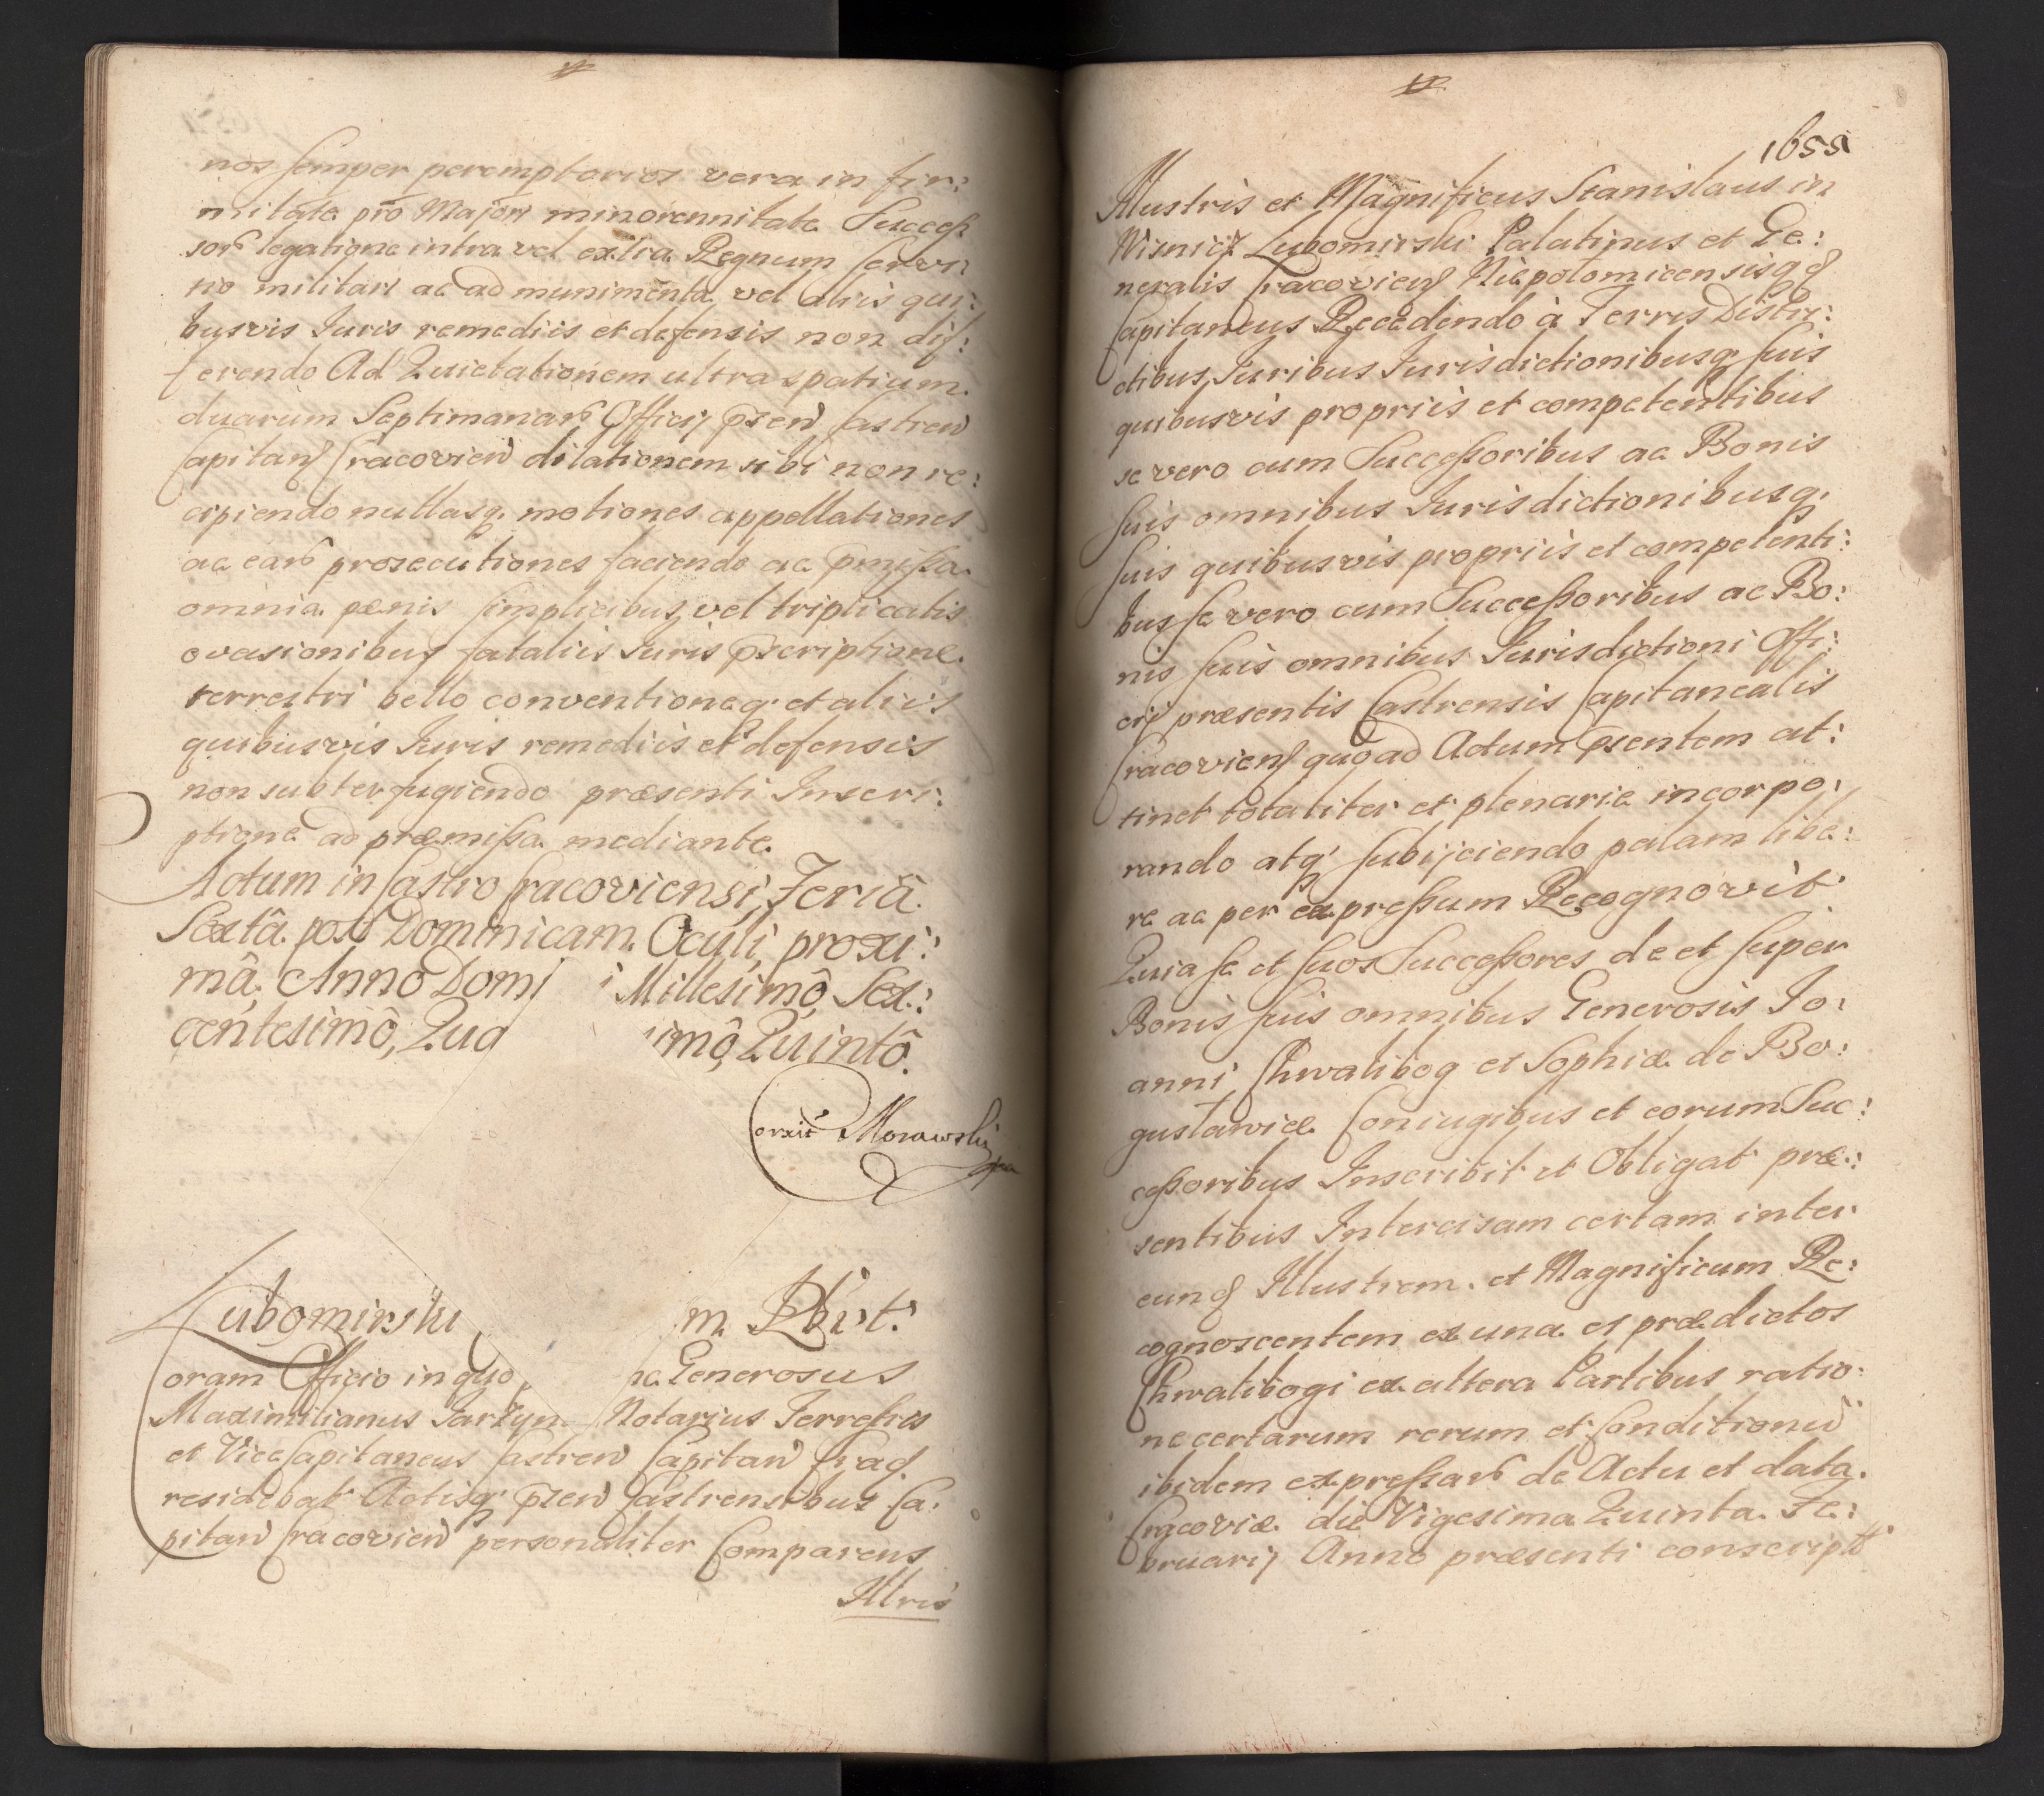 nos semper peremptorios vera in fir:
mitate pro Majori minorennitate Success
sor legatione intra vel extra Regnum servi:
tio militari ac ad munimenta vel aliis qui:
busvis Iuris remediis et defensis non dif:
ferendo Ad Quietationem ultra spatium
duarum Septimanar Officij pren Castren
Capitan Cracovien dilationem sibi non re:
cipiendo nullasq. motiones appellationes
ac ear prosecutiones faciendo ac pmissa
omnia pænis simplicibus vel triplicatis
evasionibus fataliis Iuris pscriptione
terrestri bello conventioneq. et aliis
quibusvis Iuris remediis et defensis
non subterfugiendo præsenti Inscri:
ptione ad præmissa mediante.
Actum in Castro Cracoviensi, Feriâ
Sextâ post Dominicam Oculi, proxi:
mâ, Anno Domi i Millesimô Sex:
centesimô, Qua imô, Quintô.
Corexit Morawski
Lubomirski m.
oram Officio in quo ne Generosus
Maximilianus Jarzyn Notarius Terrestris
et ViceCapitaneus Castren Capitan Crac
residebat Actisq. pren Castrensibus Ca:
pitan Cracovien personaliter Comparens
Illris
1655
Illustris et Magnificus Stanislaus in
Wisnicz Lubomirski Palatinus et Ge:
neralis Cracovien Niepolomicensisq
Capitaneus Recedendo à Terris Distri:
ctibus, Iuribus Iurisdictionibusq. suis
quibusvis propriis et competentibus
se vero cum Successoribus ac Bonis
suis omnibus Iurisdictionibusq.
suis quibusvis propriis et competenti:
bus se vero cum Successoribus ac Bo:
nis suis omnibus Iurisdictioni Offi:
cij præsentis Castrensis Capitanealis
Cracovien quoad Actum psentem at:
tinet totaliter et plenarie incorpo:
rando atq. subijciendo palam libe:
re ac per expressum Recognovit
Quia se et suos Successores de et super
Bonis suis omnibus Generosis Jo:
anni Chwalibog et Sophiæ de Bo:
gustawice Coniugibus et eorum Suc:
cessoribus Inscribit et Obligat præ:
sentibus Intercisam certam inter
eund Illustrem et Magnificum Re:
cognoscentem ex una et prædictos
Chwalibogi ex altera Partibus ratio:
ne certarum rerum et Conditionu
ibidem expressar de Actu et data
Cracoviæ die Vigesima Quinta Fe:
bruarij Anno præsenti conscript